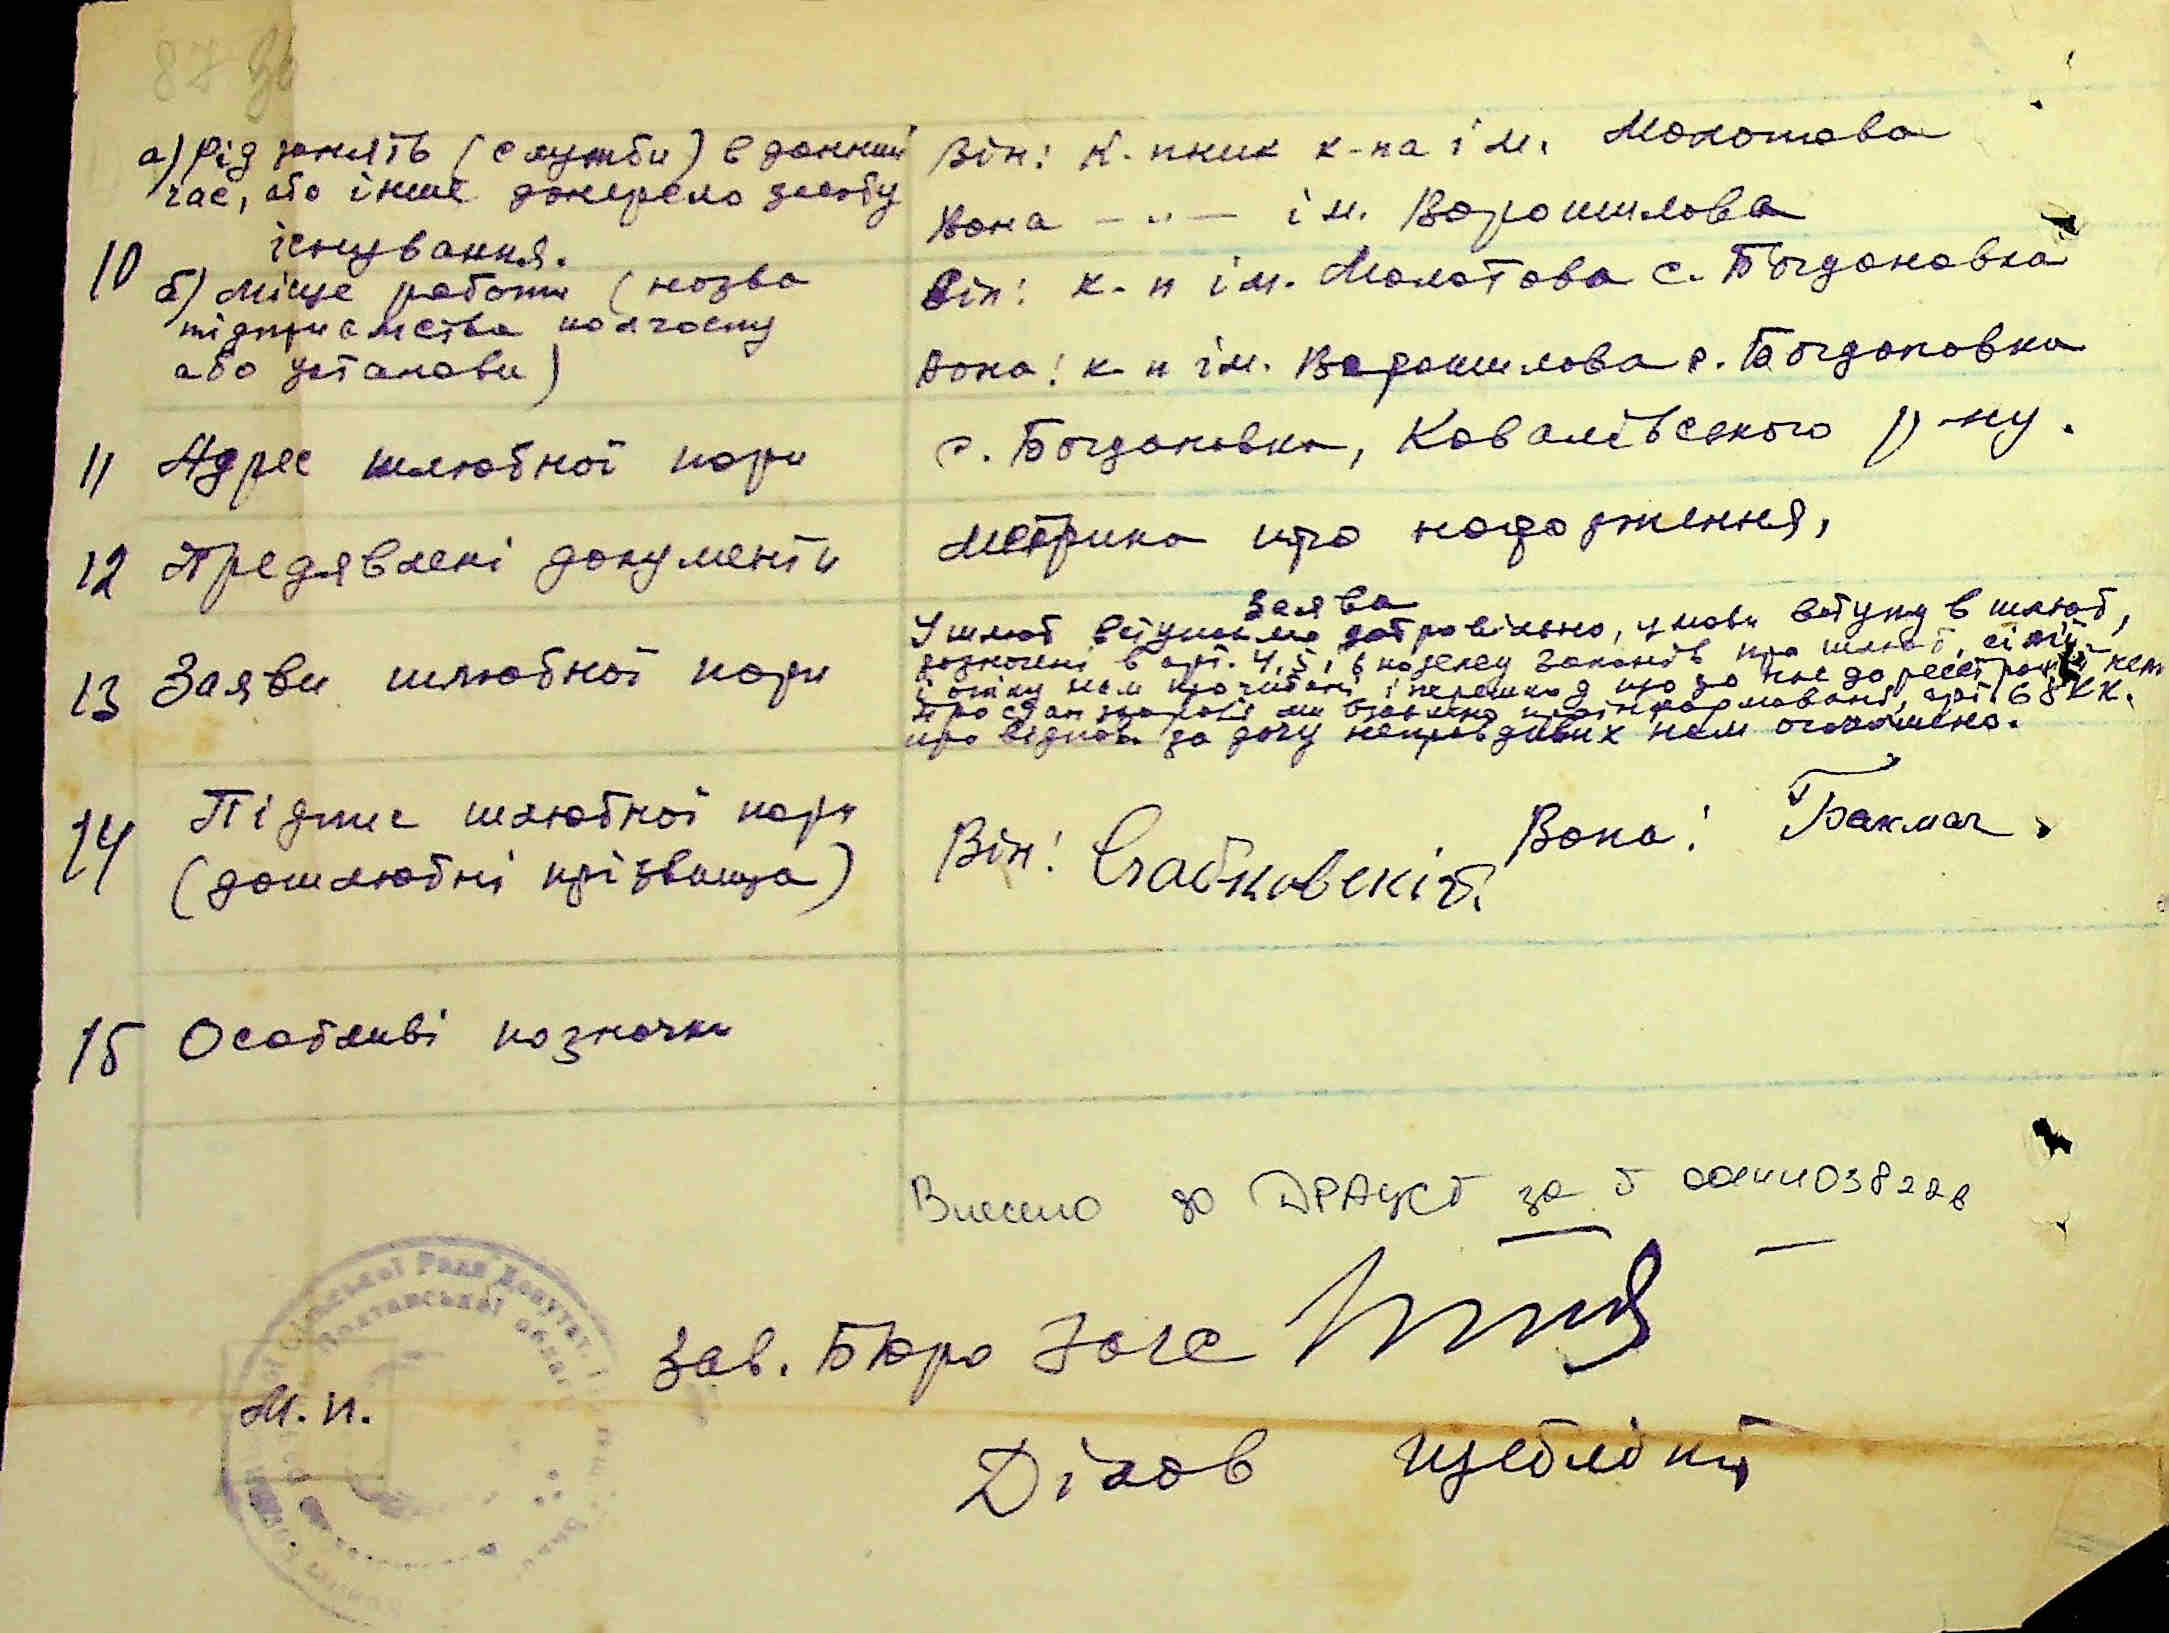 87 зв
а) Рід занять (служби) в данний
час, або інше джерело засобу
існування.
10
б) Місце работи (назва
підприємства колгоспу
або установи)
Він: К-пник к-па ім. Молотова
Вона — " — ім. Ворошилова
Він: к-п ім. Молотова с. Богдановка
Вона: к-п ім. Ворошилова с. Богдановка
11 Адрес шлюбної пари
с. Богдановка, Ковалівського р-ну.
12 Предявлені документи
Метрика про народження,
13 Заяви шлюбної пари
Заява
У шлюб вступаємо добровільно, умови вступу в шлюб,
зазначені в арт. 4, 5, 6 кодексу законів про шлюб, сімї
і опіку нам прочитані і перешкод що до нас до реєстрації нема
про стан здоровїя ми взаємно проінформовані, арт. 68 КК.
про відпов. за дачу неправдивих нам оголошено.
14 Підпис шлюбної пари
(дошлюбні прізвища)
Він: Вона: Бакмач.
15 Особливі позначки
Внесено до ДРАЦСГ за
Сільської Ради Депутат
Полтавської област
М.П.
Зав. Бюро Загс
Діловод